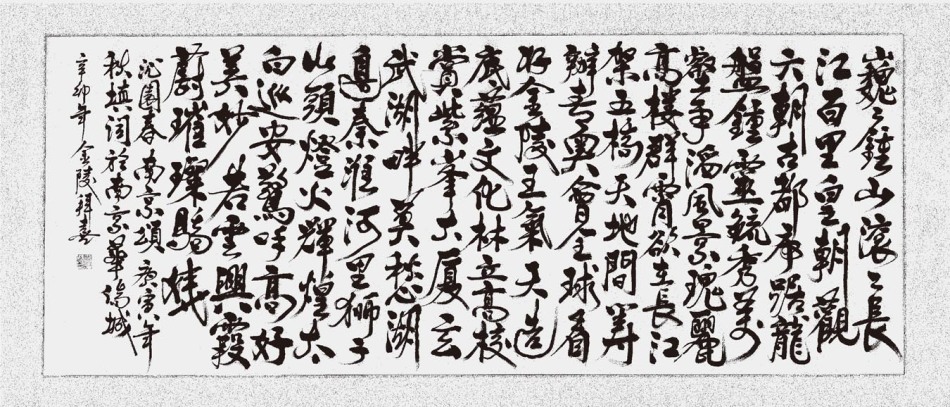 巍々鍾山滾々長
江百里皇朝觀
六朝古都虎踞龍
盤鍾靈毓秀萬
壑爭流風景瑰麗
高樓群霄欲立長江
架五橋天地間弄
辦青奧會全球看
好金陵王氣天造
底蘊文化林立高校
賞紫峯大廈玄
武湖畔莫愁湖
邊秦淮河里獅子
山頭燈火輝煌太
白巡安驚呼高好
美妙若雲興霞
蔚璀璨
沁園春南京頌庚寅年
秋填詞於南京華僑城
辛卯年金陵